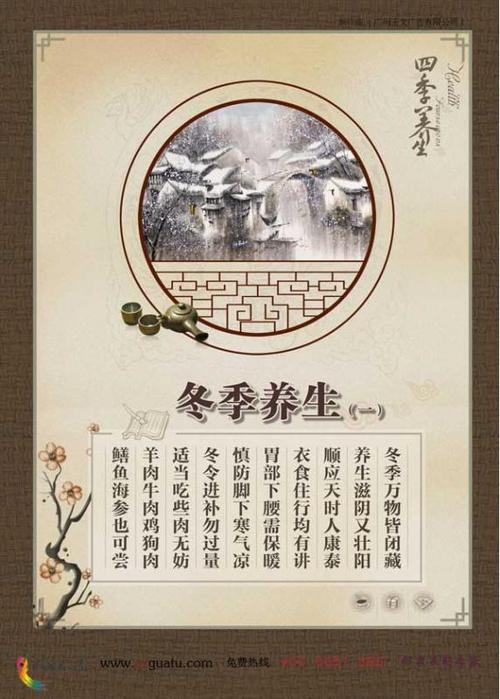 四季养生
Health
冬季养生(一)
冬季万物皆闭藏
养生滋阴又壮阳
顺应天时人康泰
衣食住行均有讲
胃部下腰需保暖
慎防脚下寒气凉
冬令进补勿过量
适当吃些肉无妨
羊肉牛肉鸡狗肉
鳝鱼海参也可尝
免费热线